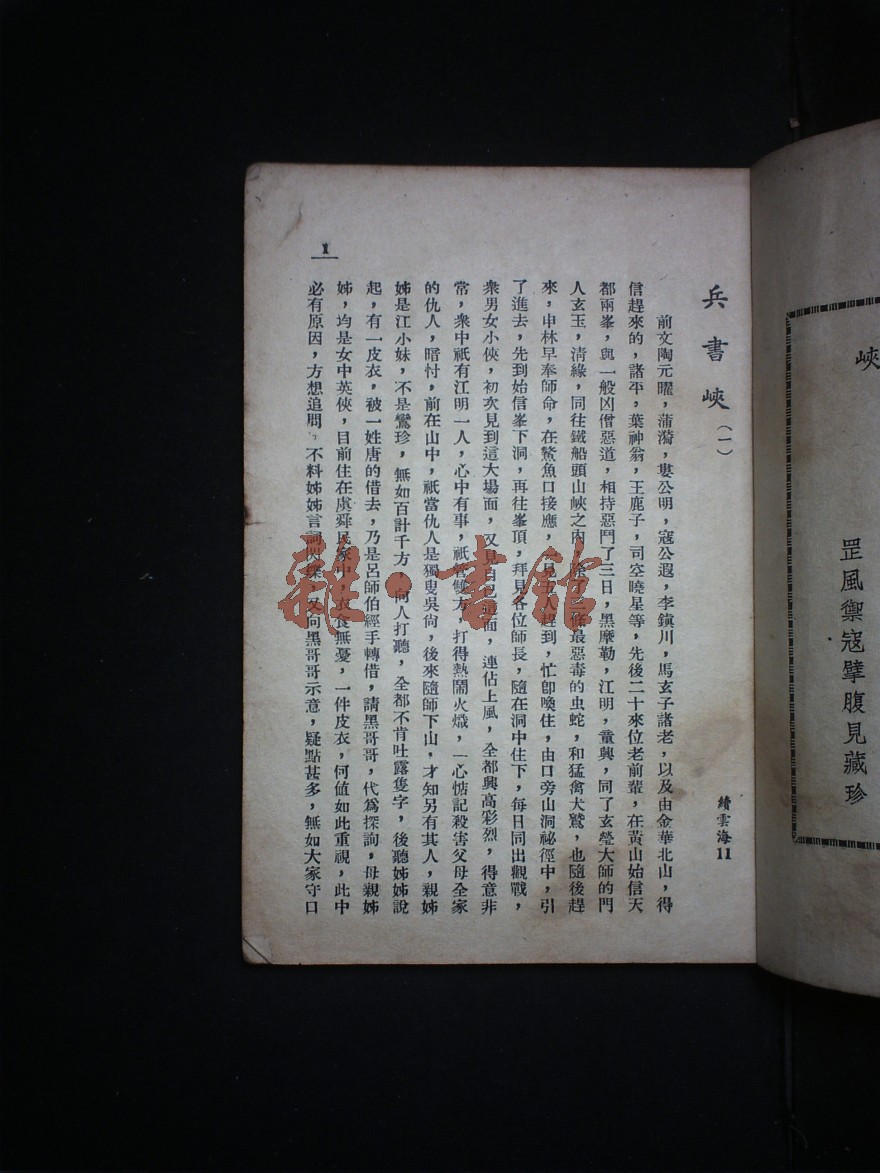 峽
罡風禦寇擘腹見藏珍
兵書峽（一）
續雲海11
前文陶元曜，蒲漪，婁公明，寇公遐，李鎮川，馬玄子諸老，以及由金華北山，得
信趕來的，諸平，葉神翁，王鹿子，司空曉星等，先後二十來位老前輩，在黃山始信天
都兩峯，與一般凶僧惡道，相持惡鬥了三日，黑摩勒，江明，童興，同了玄瑩大師的門
人玄玉，清緣，同往鐵船頭山峽之內，除了三條最惡毒的虫蛇，和猛禽犬鷲，也隨後趕
來，申林早奉師命，在鰲魚口接應，一見五人趕到，忙卽喚住，由口旁山洞祕徑中，引
了進去，先到始信峯下洞，再往峯頂，拜見各位師長，隨在洞中住下，每日同出觀戰，
衆男女小俠，初次見到這大場面，又見自己這面，連佔上風，全都興高彩烈，得意非
常，衆中祇有江明一人，心中有事，祇管雙方，打得熱鬧火熾，一心惦記殺害父母全家
的仇人，暗忖，前在山中，祇當仇人是獨叟吳尙，後來隨師下山，才知另有其人，親姊
姊是江小妹，不是鸞珍，無如百計千方，向人打聽，全都不肯吐露隻字，後聽姊姊說
起，有一皮衣，被一姓唐的借去，乃是呂師伯經手轉借，請黑哥哥，代爲探詢，母親姊
姊，均是女中英俠，目前住在虞舜民家中，衣食無憂，一件皮衣，何値如此重視，此中
必有原因，方想追問，不料姊姊言詞閃爍，又向黑哥哥示意，疑點甚多，無如大家守口
1
雜·書館